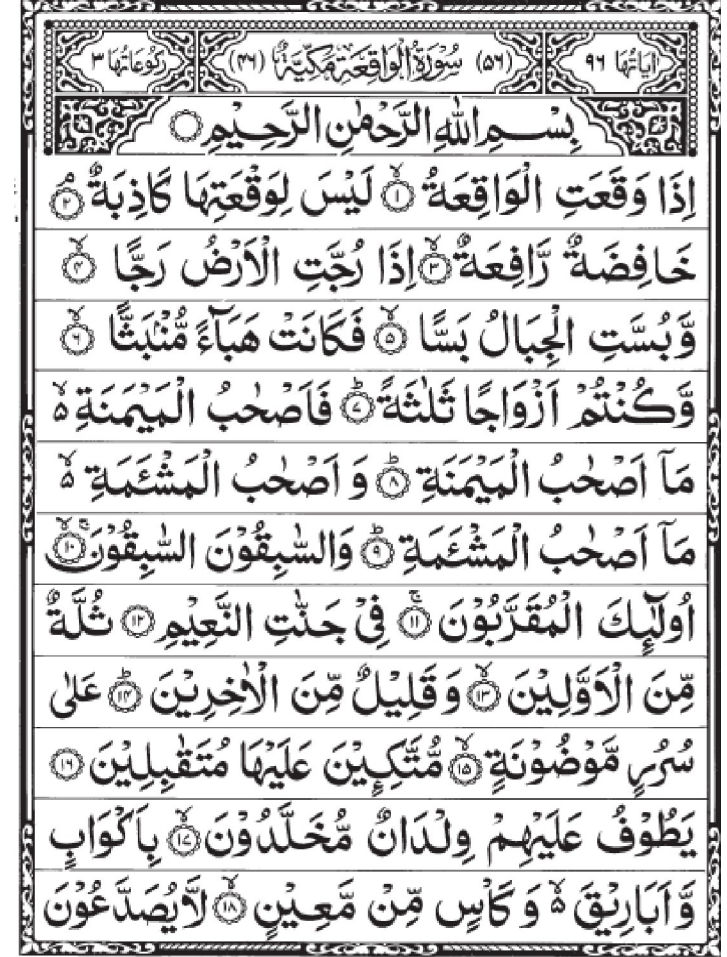 اٰيَاتُهَا ٩٦ (٥٦) سُوْرَةُ الْوَاقِعَةِ مَكِّيَّةٌ (٤٦) رُكُوْعَاتُهَا ٣
بِسْمِ اللّٰهِ الرَّحْمٰنِ الرَّحِيْمِ
اِذَا وَقَعَتِ الْوَاقِعَةُ ۙ﴿١﴾ لَيْسَ لِوَقْعَتِهَا كَاذِبَةٌ ۘ﴿٢﴾
خَافِضَةٌ رَّافِعَةٌ ۙ﴿٣﴾ اِذَا رُجَّتِ الْاَرْضُ رَجًّا ۙ﴿٤﴾
وَّبُسَّتِ الْجِبَالُ بَسًّا ۙ﴿٥﴾ فَكَانَتْ هَبَآءً مُّنْۢبَثًّا ۙ﴿٦﴾
وَّكُنْتُمْ اَزْوَاجًا ثَلٰثَةً ؕ﴿٧﴾ فَاَصْحٰبُ الْمَيْمَنَةِ ۙ۬
مَاۤ اَصْحٰبُ الْمَيْمَنَةِ ؕ﴿٨﴾ وَ اَصْحٰبُ الْمَشْـَٔمَةِ ۙ۬
مَاۤ اَصْحٰبُ الْمَشْـَٔمَةِ ؕ﴿٩﴾ وَالسّٰبِقُوْنَ السّٰبِقُوْنَ ۚۙ﴿١٠﴾
اُولٰٓئِكَ الْمُقَرَّبُوْنَ ۚ﴿١١﴾ فِيْ جَنّٰتِ النَّعِيْمِ ﴿١٢﴾ ثُلَّةٌ
مِّنَ الْاَوَّلِيْنَ ۙ﴿١٣﴾ وَقَلِيْلٌ مِّنَ الْاٰخِرِيْنَ ؕ﴿١٤﴾ عَلٰى
سُرُرٍ مَّوْضُوْنَةٍ ۙ﴿١٥﴾ مُّتَّكِـِٕيْنَ عَلَيْهَا مُتَقٰبِلِيْنَ ﴿١٦﴾
يَطُوْفُ عَلَيْهِمْ وِلْدَانٌ مُّخَلَّدُوْنَ ۙ﴿١٧﴾ بِاَكْوَابٍ
وَّاَبَارِيْقَ ۙ۬ وَكَاْسٍ مِّنْ مَّعِيْنٍ ۙ﴿١٨﴾ لَّا يُصَدَّعُوْنَ